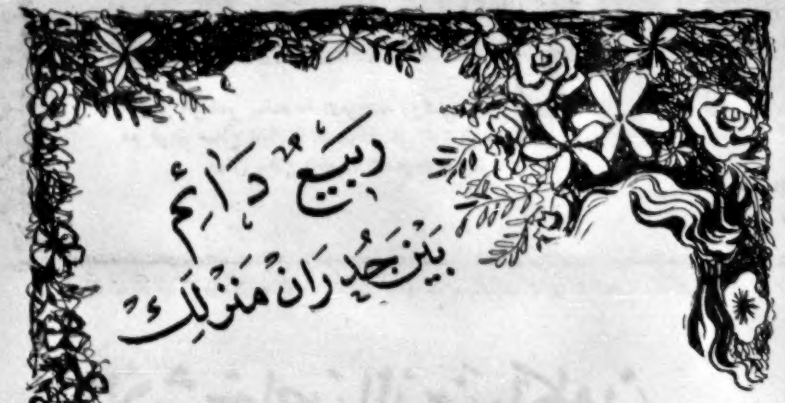 رَبِيعٌ دَائِم
بَيْنَ جُدْرَانْ مَنْزِلِك